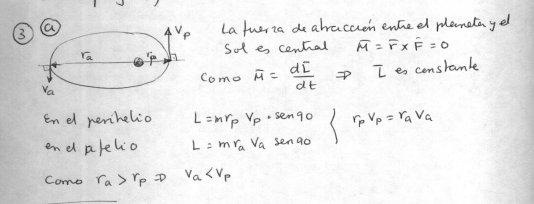 ③ ⓐ
Vp
ra
rp
Va
La fuerza de atracción entre el planeta y el
Sol es central M̄ = r̄ x F̄ = 0
Como M̄ = dL̄/dt ⇒ L̄ es constante
En el perihelio L = m rp Vp · sen 90
en el afelio L = m ra Va sen 90
} rp Vp = ra Va
Como ra > rp ⇒ Va < Vp